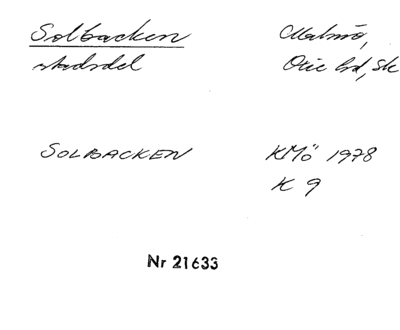 Solbacken
stadsdel
Malmö,
Oxie hd, Sk
SOLBACKEN
KMö 1978
K 9
Nr 21633